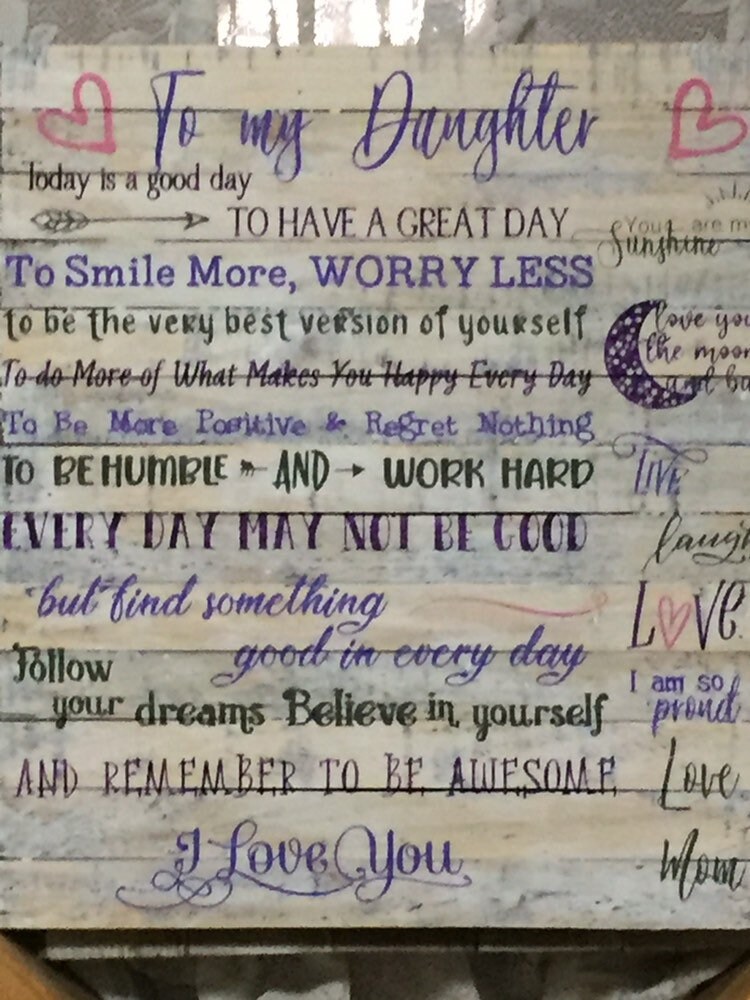 To my Daughter
Today is a good day
TO HAVE A GREAT DAY
To Smile More, WORRY LESS
to be the very best version of yourself
To do More of What Makes You Happy Every Day
To Be More Positive & Regret Nothing
TO BE HUMBLE AND WORK HARD
EVERY DAY MAY NOT BE GOOD
but find something
good in every day
Follow
your dreams Believe in yourself
AND REMEMBER TO BE AWESOME
I Love You
You are my
Sunshine
love you
the moon
and ba
LIVE
laugh
LOVE
I am so
proud
Love
Mom